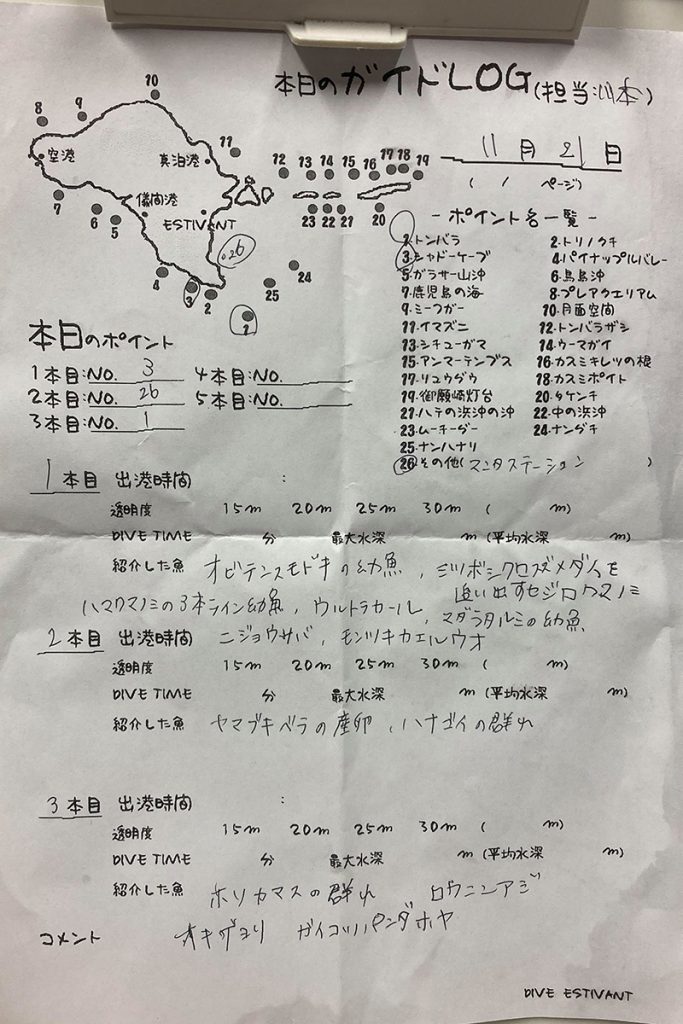 本日のガイドLOG(担当:川本)
11月21日
( / ページ)
10
8 9
空港
真泊港
11
儀間港
ESTIVANT
7 6 5
12 13 14 15 16 17 18 19
23 22 21 20
26
4 3 2
25 24
1
-ポイント名一覧-
1.トンバラ 2.トリノクチ
3.シャドーケーブ 4.パイナップルバレー
5.ガラサー山沖 6.鳥島沖
7.鹿児島の海 8.プレアクエリアム
9.ミーフガー 10.月面空間
11.イマズニ 12.トンバラザシ
13.シチューガマ 14.ウーマガイ
15.アンマーテンブス 16.カスミキレツの根
17.リュウダウ 18.カスミポイト
19.御願崎灯台 20.タケンチ
21.ハテの浜沖の沖 22.中の浜沖
23.ムーチーダー 24.ナンダチ
25.ナンハナリ
26.その他(マンタステーション )
本日のポイント
1本目:NO. 3 4本目:NO.
2本目:NO. 26 5本目:NO.
3本目:NO. 1
1本目 出港時間 :
透明度 15m 20m 25m 30m ( m)
DIVE TIME 分 最大水深 m (平均水深 m)
紹介した魚 オビテンスモドキの幼魚、ミツボシクロスズメダイを
追い出すセジロクマノミ
ハマクマノミの3本ライン幼魚、ウルトラカール、マダラタルミの幼魚
ニジョウサバ、モンツキカエルウオ
2本目 出港時間
透明度 15m 20m 25m 30m ( m)
DIVE TIME 分 最大水深 m (平均水深 m)
紹介した魚 ヤマブキベラの産卵、ハナゴイの群れ
3本目 出港時間 :
透明度 15m 20m 25m 30m ( m)
DIVE TIME 分 最大水深 m (平均水深 m)
紹介した魚 ホソカマスの群れ ロウニンアジ
オキザヨリ ガイコツパンダホヤ
コメント
DIVE ESTIVANT